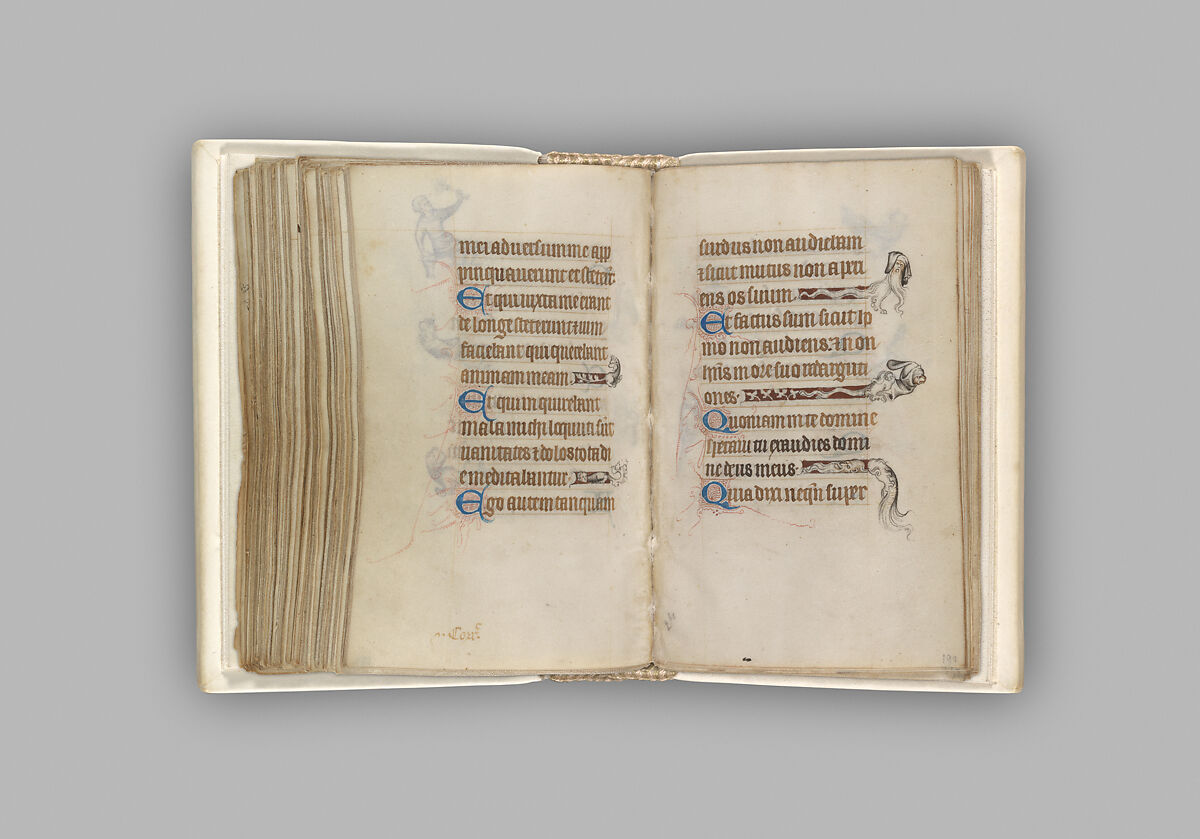 mei aduersum me app
pinquauerunt et stete͛t:
Et qui iuxta me erant
de longe steterunt ⁊ uim
faciebant qui querebant
animam meam
Et qui inquirebant
mala michi locuti sūt
uanitates ⁊ dolos tota di
e meditabantur
Ego autem tanquam
Corr͛
surdus non audiebam
⁊ sicut mutus non aperi
ens os suum
Et factus sum sicut ho
mo non audiens: ⁊ non
hn̄s in ore suo redarguti
ones
Quoniam in te domine
speraui tu exaudies domi
ne deus meus
Quia dixi neqn̄ super